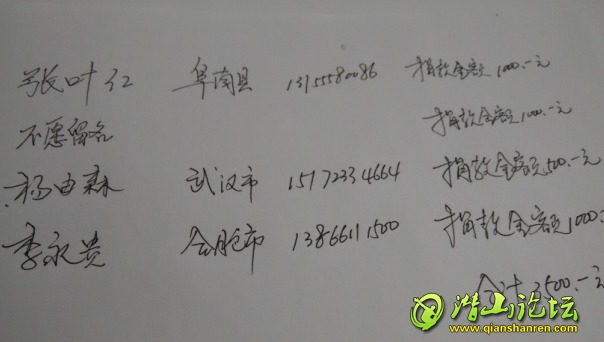 张叶红 阜南县 13155580086 捐款金额1000.-元
不愿留名 捐款金额1000.-元
杨由森 武汉市 15172334664 捐款金额500.-元
李永贵 合肥市 13866111500 捐款金额1000.
合计3500.-元
潜山论坛
www.qianshanren.com